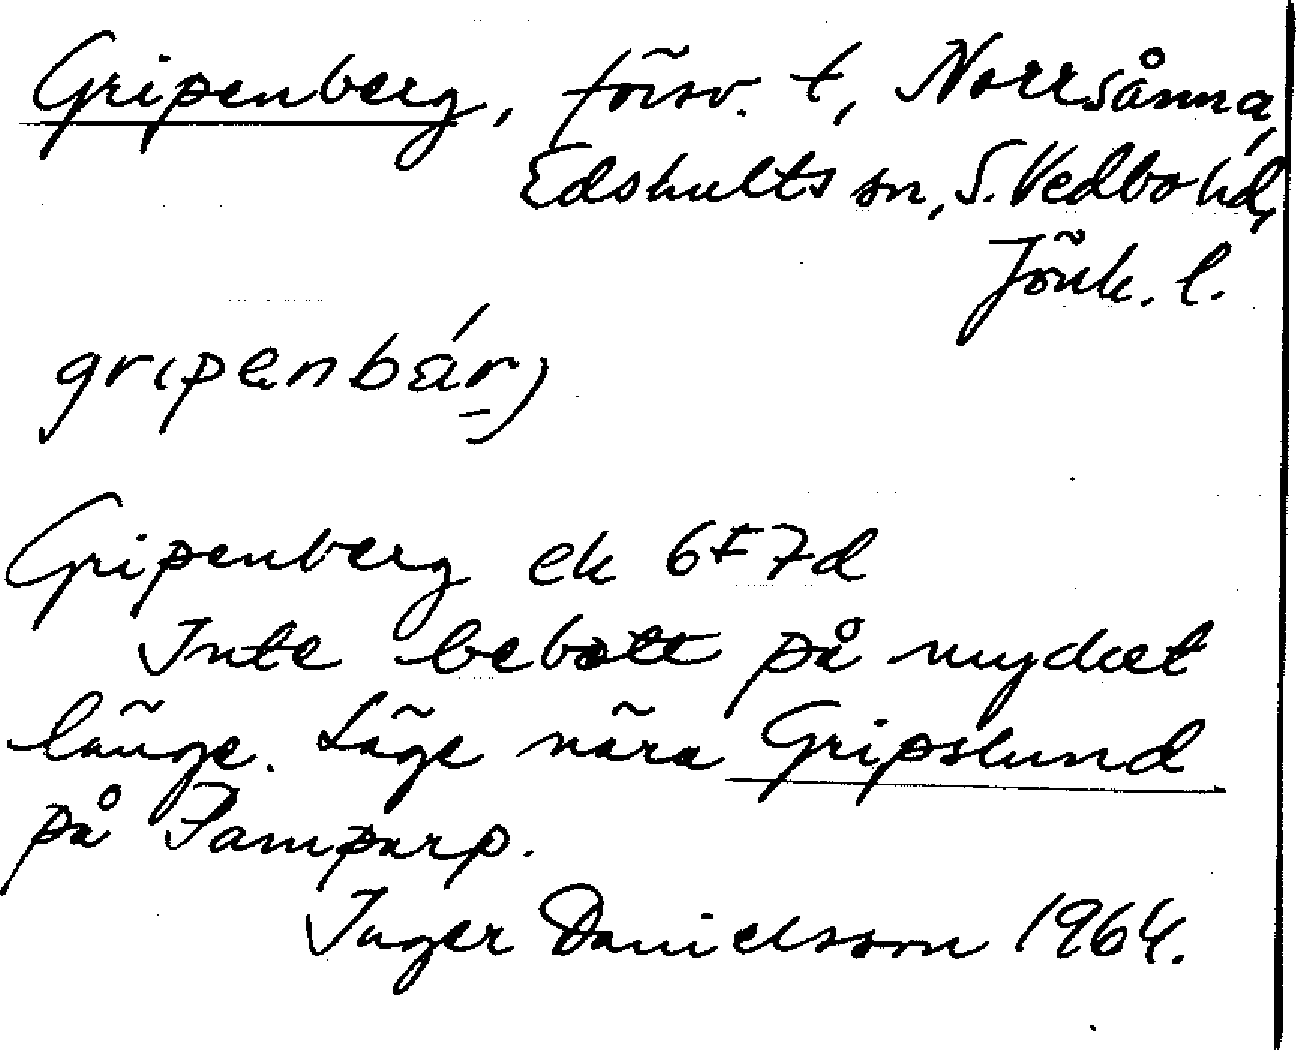 Gripenberg, försv. t, Norrsånna,
Edshults sn, S. Vedbo hd,
Jönk. l.
gripenbár)
Gripenberg ek 6F7d
Inte bebott på mycket
länge. Läge nära Gripslund
på Pamparp.
Inger Danielsson 1964.